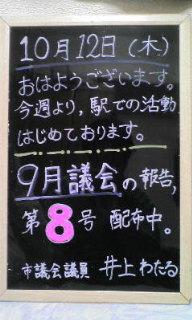 10月12日(木)
おはようございます。
今週より,駅での活動
はじめております。
9月議会の報告,
第8号 配布中。
市議会議員 井上わたる